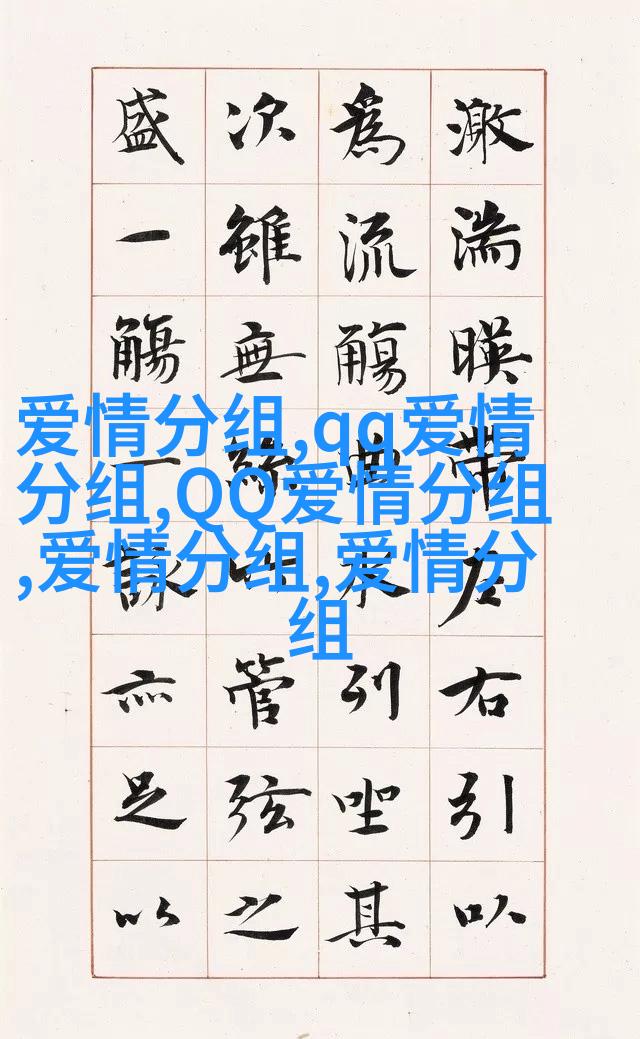 激湍暎帶左右引以
為流觴曲水列坐其
次雖無絲竹管弦之
盛一觴一詠亦足以
爱情分组,qq爱情
分组,QQ爱情分组
,爱情分组,爱情分
组